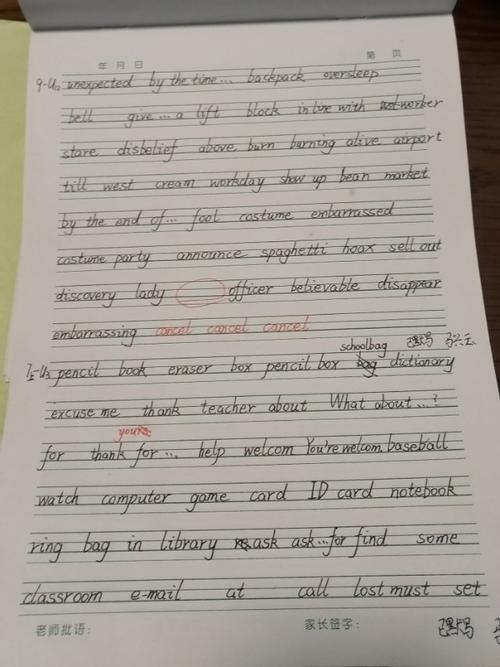 年 月 日 第 页
9-U unexpected by the time... backpack oversleep
bell give...a lift block in line with worker
stare disbelief above burn burning alive airport
till west cream workday show up bean market
by the end of... fool costume embarrassed
costume party announce spaghetti hoax sell out
discovery lady officer believable disappear
embarrassing cancel cancel cancel
schoolbag
pencil book eraser box pencil box bag dictionary
excuse me thank teacher about What about...?
for thank for... help welcom You're welcom. baseball
watch computer game card ID card notebook
ring bag in library ask ask...for find some
classroom e-mail at call lost must set
老师批语: 家长签字: